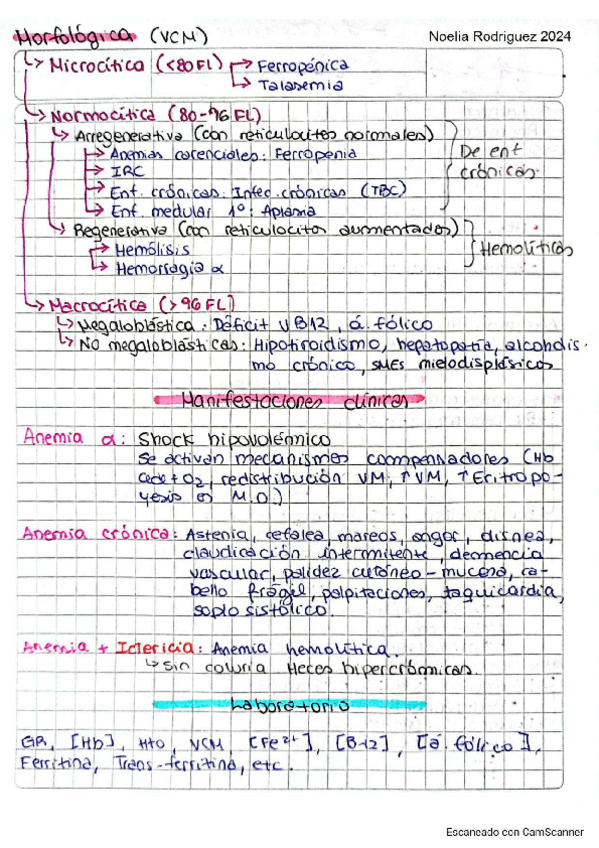 Morfológica (VCM)
Noelia Rodriguez 2024
↳ Microcítica (<80FL) → Ferropénica
↳ Talasemia
↳ Normocítica (80-96 FL)
↳ Arregenerativa (con reticulocitos normales)
↳ Anemias carenciales: Ferropenia
↳ IRC
↳ Enf. crónicas: Infec. crónicas (TBC)
↳ Enf. medular 1º: Aplasia
De enf
crónicas.
↳ Regenerativa (con reticulocitos aumentados)
↳ Hemólisis
↳ Hemorragia α
Hemolíticas
↳ Macrocítica (>96 FL)
↳ Megaloblástica: Déficit VB12, á. fólico
↳ No megaloblásticas: Hipotiroidismo, hepatopatía, alcoholis
mo crónico, SMEs mielodisplásicos
Manifestaciones clínicas
Anemia α: Shock hipovolémico
Se activan mecanismos compensadores (Hb
cede + O2, redistribución VM, ↑VM, ↑Eritropo-
yesis en M.O)
Anemia crónica: Astenia, cefalea, mareos, angor, disnea,
claudicación intermitente, demencia
vascular, palidez cutáneo-mucosa, ca-
bello frágil, palpitaciones, taquicardia,
soplo sistólico.
Anemia + Ictericia: Anemia hemolítica.
↳ Sin coluria Heces hipercrómicas.
Laboratorio
GR, [Hb], Hto, VCM, [Fe2+], [B-12], [á. fólico],
Ferritina, Trans-ferritina, etc.
Escaneado con CamScanner